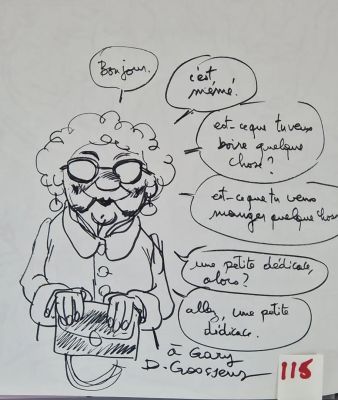 Bonjour.
c'est
mémé.
est-ce que tu veux
boire quelque
chose?
est-ce que tu veux
manger quelque chose
une petite dédicace,
alors?
allez, une petite
dédicace.
à Gary
D. Goossens
115